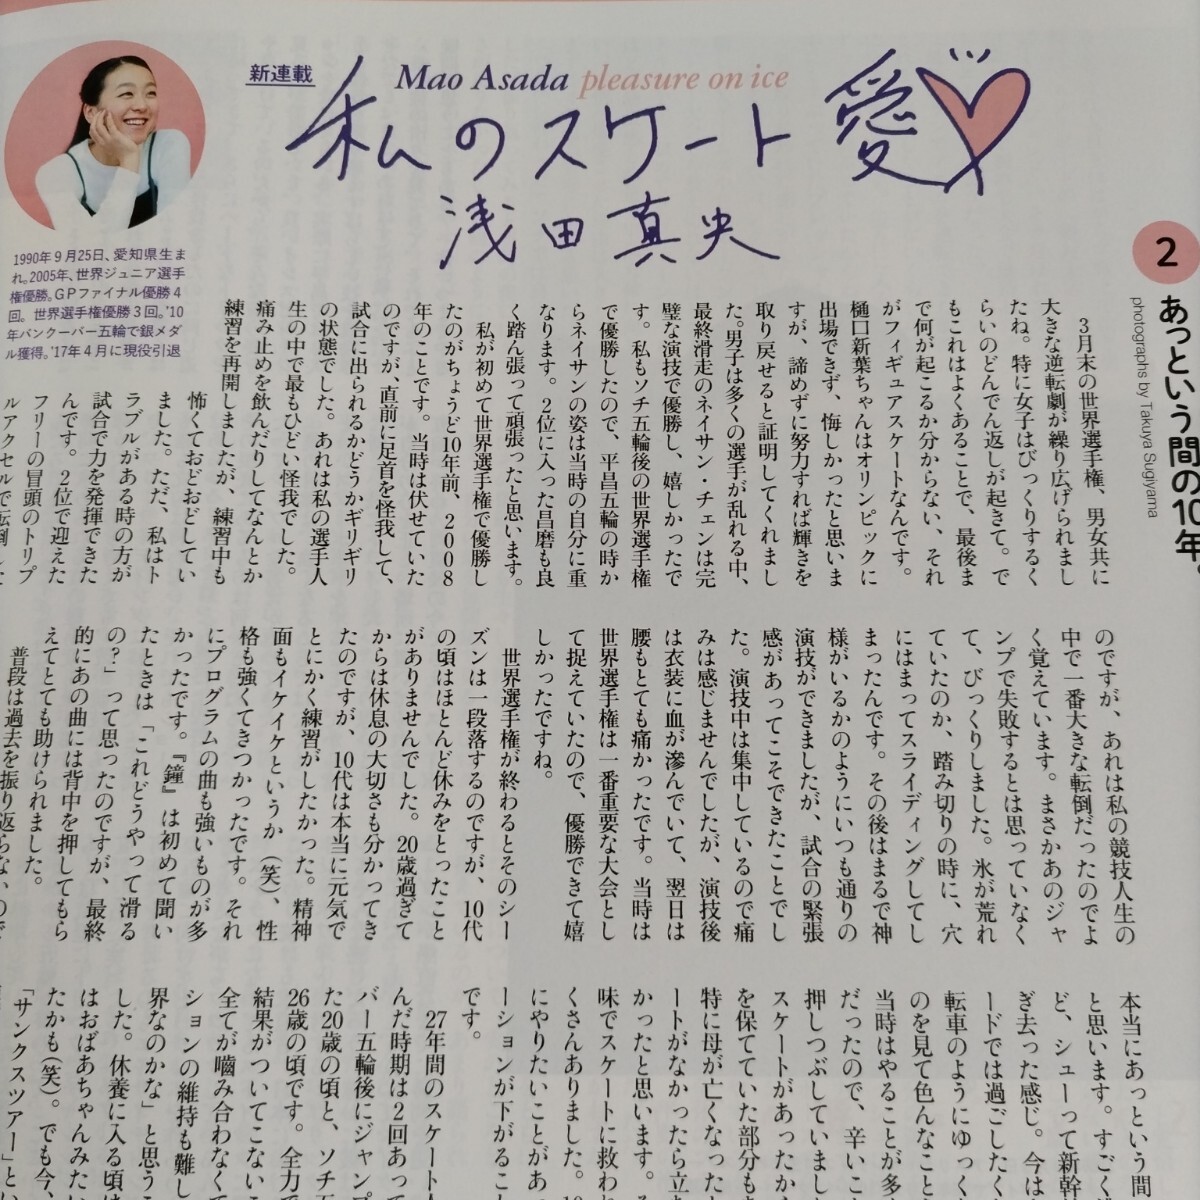 新連載
Mao Asada pleasure on ice
私のスケート愛
浅田真央
1990年9月25日、愛知県生ま
れ。2005年、世界ジュニア選手
権優勝。GPファイナル優勝4
回。世界選手権優勝3回。'10
年バンクーバー五輪で銀メダ
ル獲得。'17年4月に現役引退
2
あっという間の10年。
photographs by Takuya Sugiyama
3月末の世界選手権、男女共に
大きな逆転劇が繰り広げられまし
たね。特に女子はびっくりするく
らいのどんでん返しが起きて。で
もこれはよくあることで、最後ま
で何が起こるか分からない、それ
がフィギュアスケートなんです。
樋口新葉ちゃんはオリンピックに
出場できず、悔しかったと思いま
すが、諦めずに努力すれば輝きを
取り戻せると証明してくれまし
た。男子は多くの選手が乱れる中、
最終滑走のネイサン・チェンは完
璧な演技で優勝し、嬉しかったで
す。私もソチ五輪後の世界選手権
で優勝したので、平昌五輪の時か
らネイサンの姿は当時の自分に重
なります。2位に入った昌磨も良
く踏ん張って頑張ったと思います。
私が初めて世界選手権で優勝し
たのがちょうど10年前、2008
年のことです。当時は伏せていた
のですが、直前に足首を怪我して、
試合に出られるかどうかギリギリ
の状態でした。あれは私の選手人
生の中で最もひどい怪我でした。
痛み止めを飲んだりしてなんとか
練習を再開しましたが、練習中も
怖くておどおどしてい
ました。ただ、私はト
ラブルがある時の方が
試合で力を発揮できた
んです。2位で迎えた
フリーの冒頭のトリプ
ルアクセルで転倒した
のですが、あれは私の競技人生の
中で一番大きな転倒だったのでよ
く覚えています。まさかあのジャ
ンプで失敗するとは思っていなく
て、びっくりしました。氷が荒れ
ていたのか、踏み切りの時に、穴
にはまってスライディングしてし
まったんです。その後はまるで神
様がいるかのようにいつも通りの
演技ができましたが、試合の緊張
感があってこそできたことでし
た。演技中は集中しているので痛
みは感じませんでしたが、演技後
は衣装に血が滲んでいて、翌日は
腰もとても痛かったです。当時は
世界選手権は一番重要な大会とし
て捉えていたので、優勝できて嬉
しかったですね。
世界選手権が終わるとそのシー
ズンは一段落するのですが、10代
の頃はほとんど休みをとったこと
がありませんでした。20歳過ぎて
からは休息の大切さも分かってき
たのですが、10代は本当に元気で
とにかく練習がしたかった。精神
面もイケイケというか(笑)、性
格も強くてきつかったです。それ
にプログラムの曲も強いものが多
かったです。『鐘』は初めて聞い
たときは「これどうやって滑る
の?」って思ったのですが、最終
的にあの曲には背中を押してもら
えてとても助けられました。
普段は過去を振り返らないので
本当にあっという間
と思います。すごく
ど、シューって新幹
ぎ去った感じ。今は
ードでは過ごしたく
転車のようにゆっく
のを見て色んなこと
当時はやることが多
だったので、辛いこ
押しつぶしていまし
スケートがあったか
を保てていた部分も
特に母が亡くなった
ートがなかったら立
かったと思います。
味でスケートに救われ
くさんありました。
にやりたいことがあ
ーションが下がるこ
です。
27年間のスケート人
んだ時期は2回あって
バー五輪後にジャンプ
た20歳の頃と、ソチ五
26歳の頃です。全力で
結果がついてこないこ
全てが噛み合わなくて
ションの維持も難し
界なのかな」と思うこ
した。休養に入る頃は
はおばあちゃんみたい
たかも(笑)。でも今、
「サンクスツアー」と